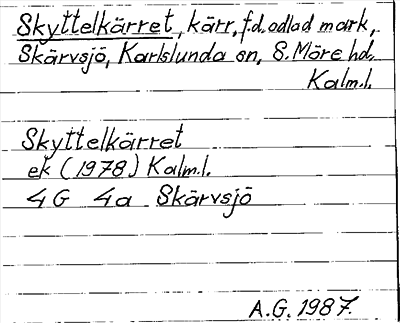 Skyttelkärret, kärr, f.d. odlad mark,
Skärvsjö, Karlslunda sn, S. Möre hd,
Kalm.l.
Skyttelkärret
ek (1978) Kalm.l.
4G 4a Skärvsjö
A.G. 1987.